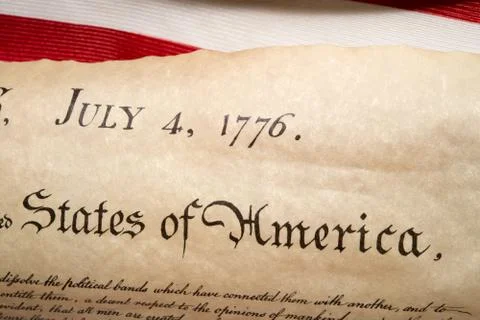 JULY 4, 1776.
States of America.
dissolve the political bands which have connected them with another, and to
entitle them, a decent respect to the opinions of mankind
evident, that all men are created